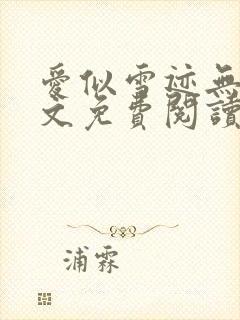 愛似雪迹無
文免費閱讀
浦霖